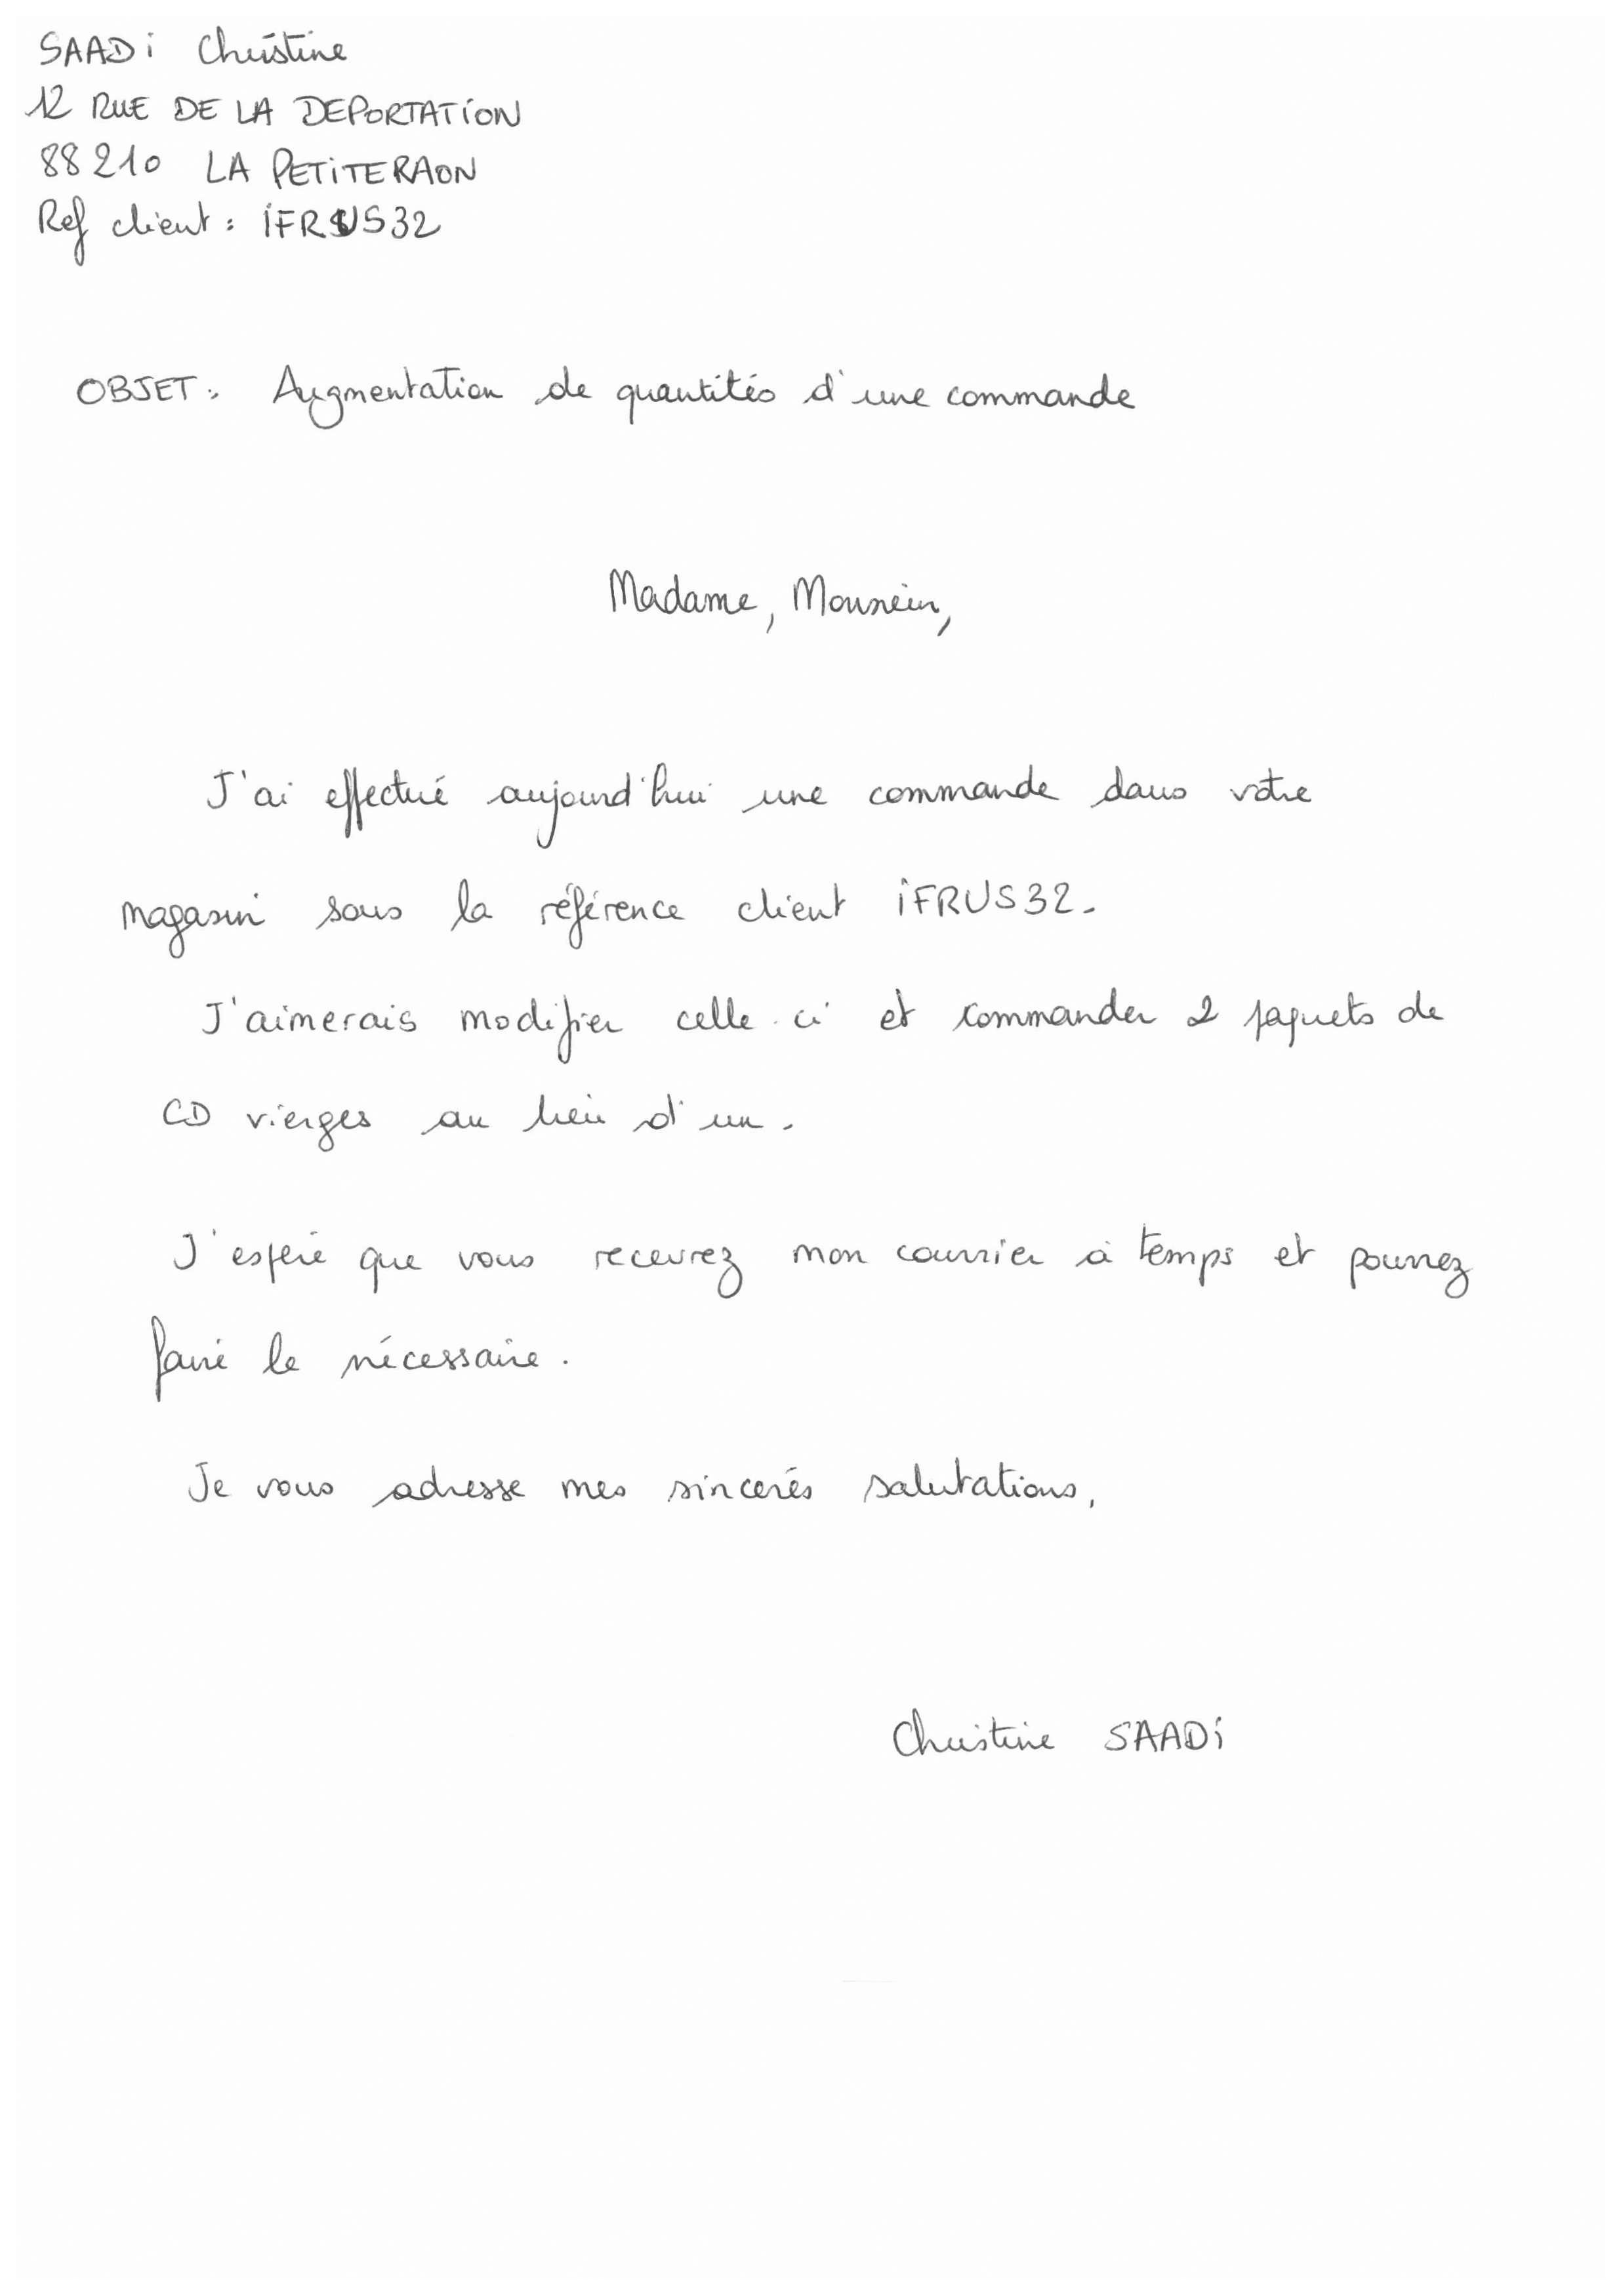 SAADi Christine
12 RUE DE LA DEPORTATiON
88210 LA PETiTERAON
Ref client : iFRUS32
OBJET : Augmentation de quantités d'une commande
Madame, Monsieur,
J'ai effectué aujourd'hui une commande dans votre
magasin sous la référence client iFRUS32.
J'aimerais modifier celle ci et commander 2 paquets de
CD vierges au lieu d'un.
J'espère que vous recevrez mon courrier à temps et pourrez
faire le nécessaire.
Je vous adresse mes sincères salutations,
Christine SAADi